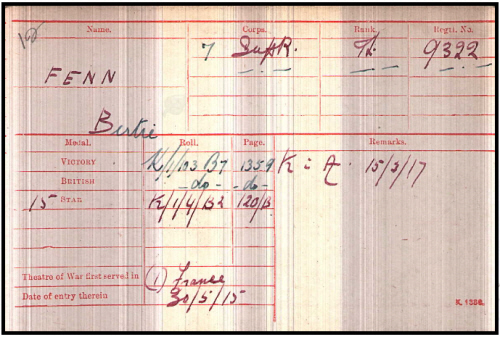 Name. Corps. Rank. Regtl. No.
FENN 7 Suff R. Pte. 9322
Bertie
Medal. Roll. Page. Remarks.
VICTORY K/1/103 B7 1359 K in A. 15/3/17
BRITISH -do- -do-
15 STAR K/1/4/B2 120/B
Theatre of War first served in (1) France
Date of entry therein 30/5/15
K. 1386.